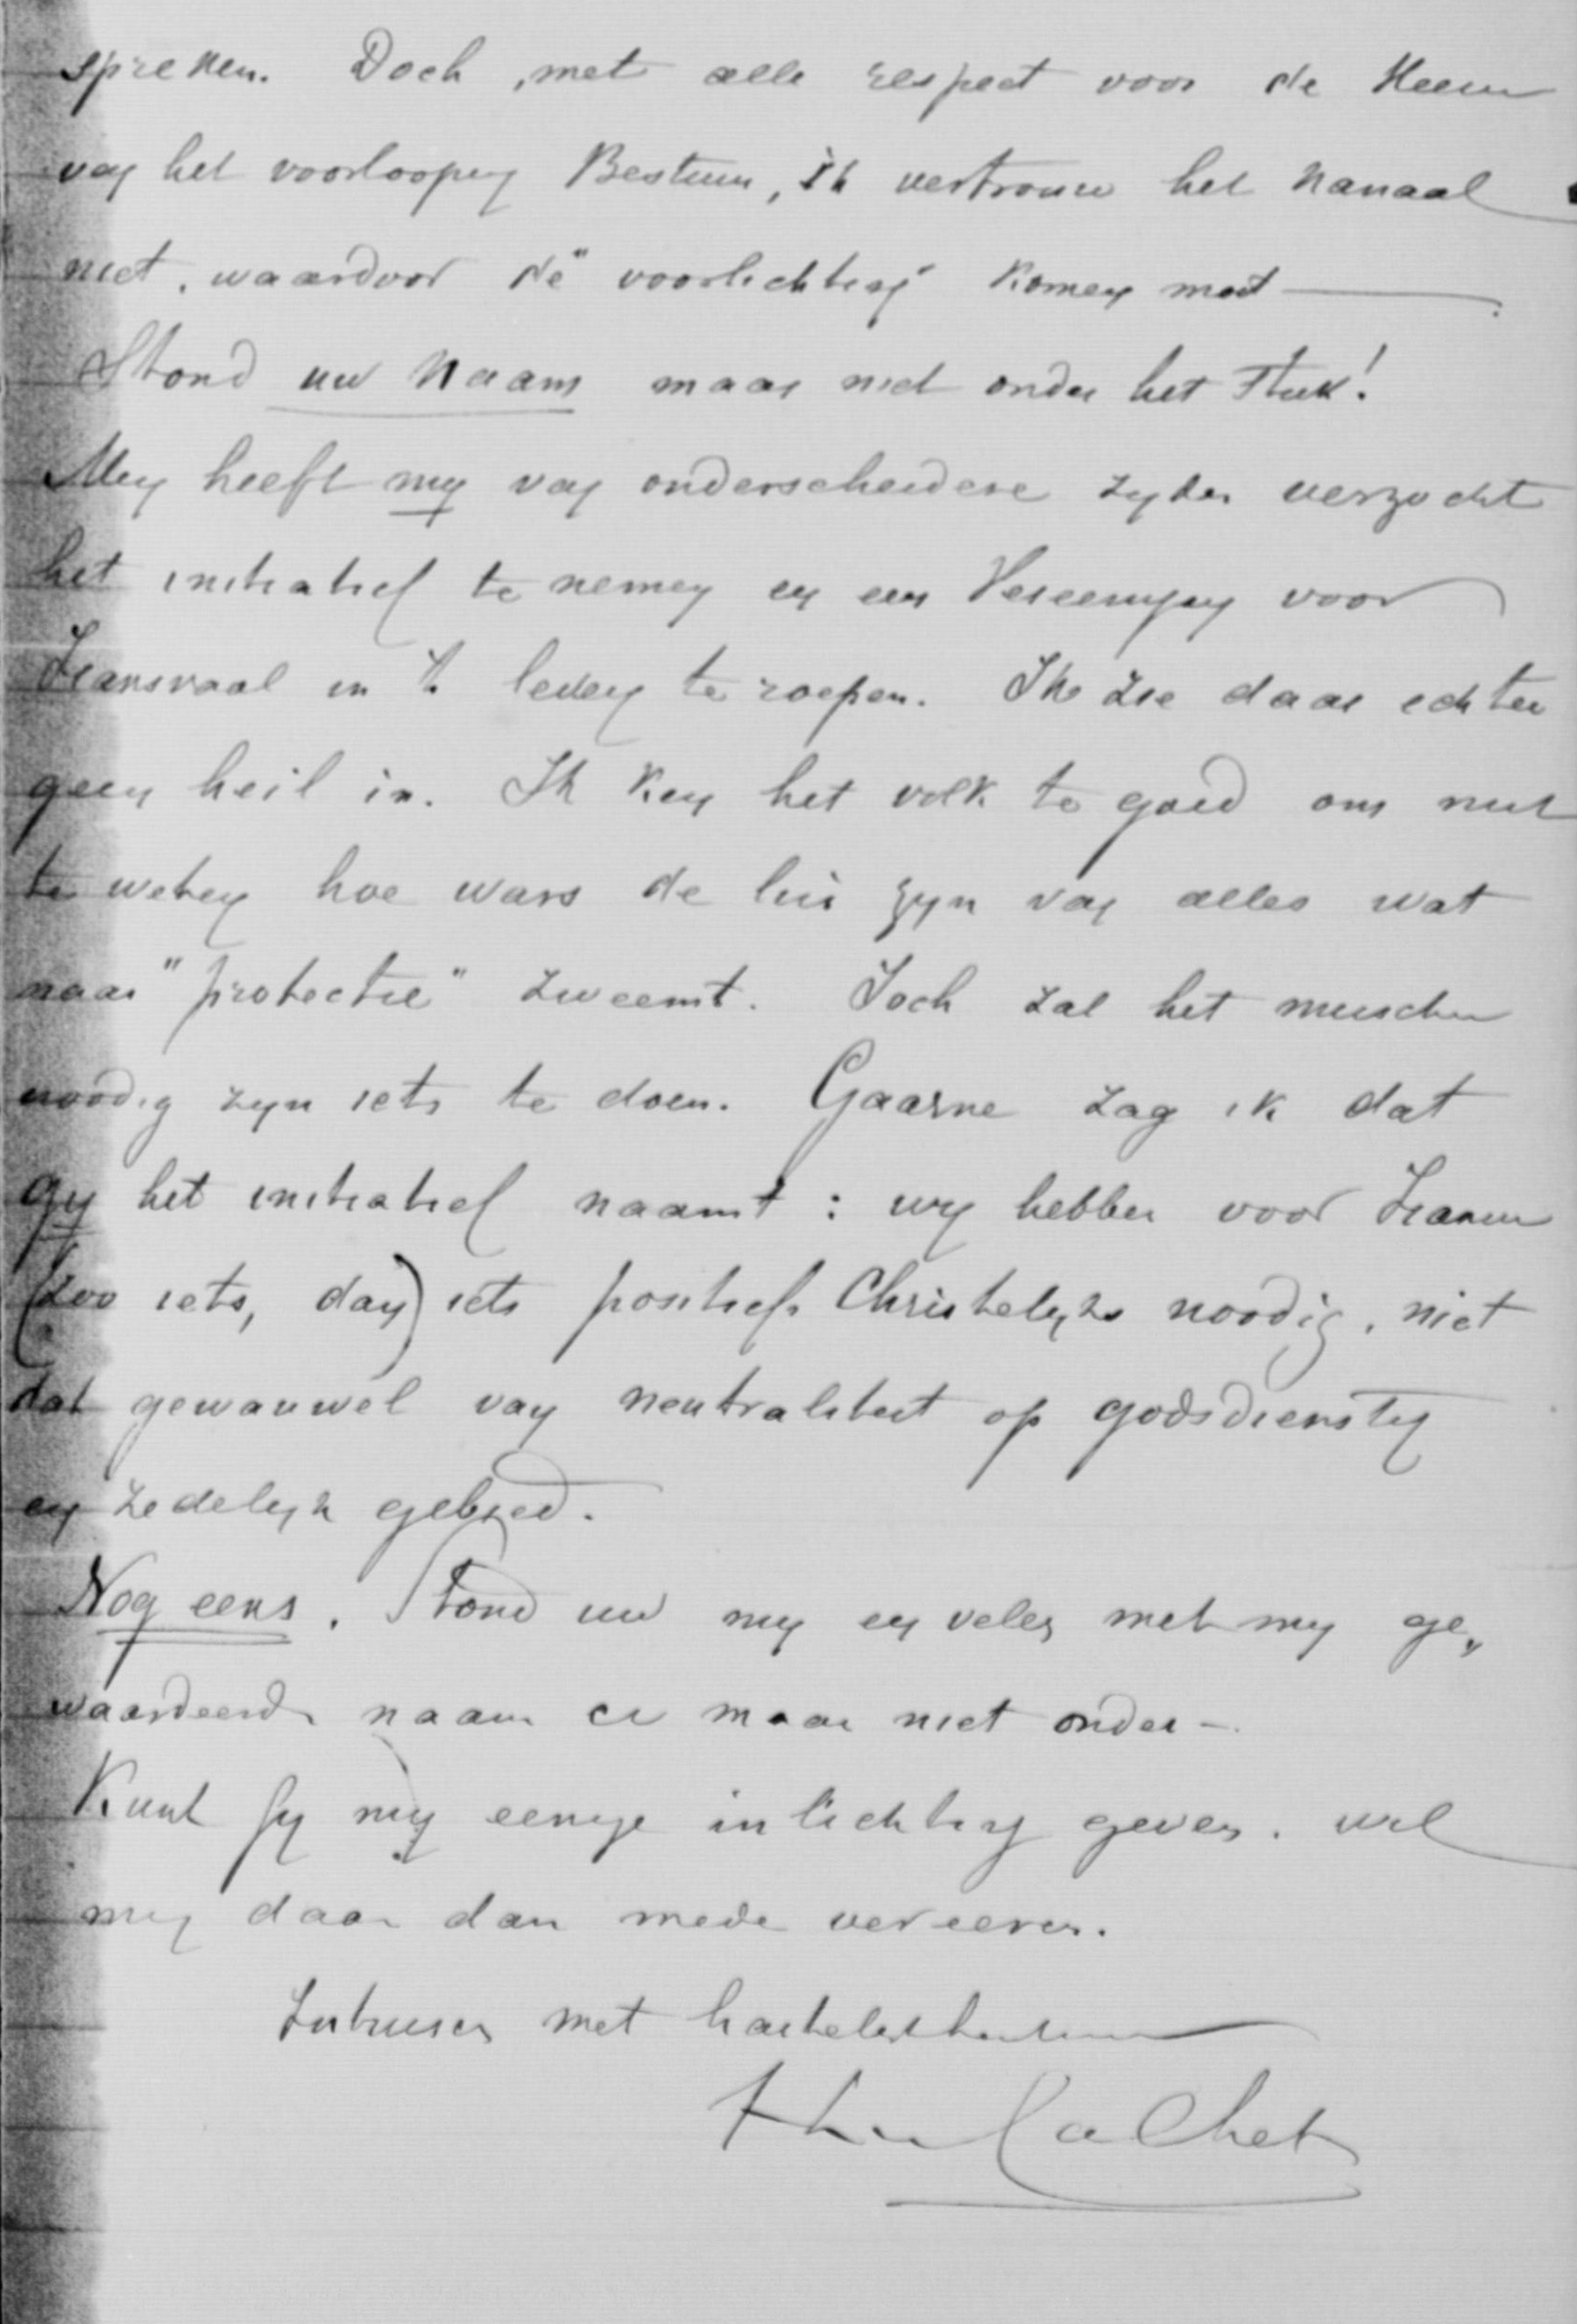 spreken. Doch, met alle respect voor de Heeren
van het voorloopig Bestuur, ik vertrouw het kanaal
niet, waardoor de "voorlichting" komen moet.
Stond uw Naam maar niet onder het stuk!
Men heeft my van onderscheidene zyden verzocht
het initiatief te nemen en een Vereeniging voor
Transvaal in 't leven te roepen. Ik zie daar echter
geen heil in. Ik ken het volk te goed om niet
te weten hoe wars de lui zyn van alles wat
naar "protectie" zweemt. Toch zal het misschien
noodig zyn iets te doen. Gaarne zag ik dat
gy het initiatief naamt: wy hebben voor Transv.
(zoo iets, dan) iets positiefs Christelyks noodig, niet
dat gewauwel van neutraliteit op godsdienstig
en zedelyk gebied.
Nog eens. Stond uw my en velen met my ge„
waardeerde naam er maar niet onder -.
Kunt gy my eenige inlichting geven, wil
my daar dan mede vereeren.
Intusschen met hartelykheid
Lion Cachet